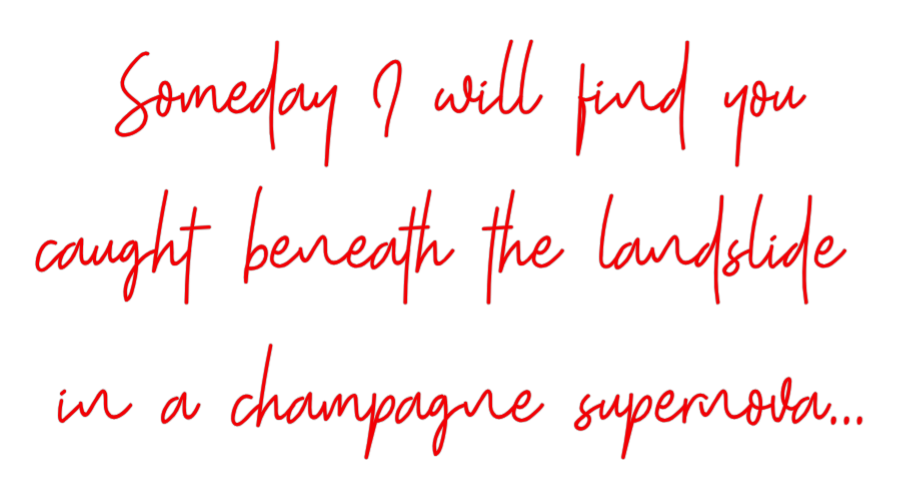 Someday I will find you
caught beneath the landslide
in a champagne supernova...